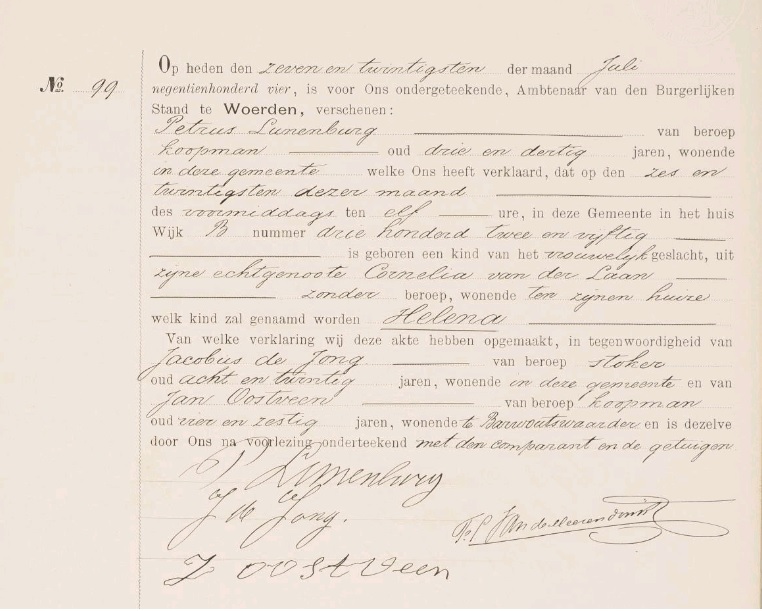 Op heden den zeven en twintigsten der maand Juli
No. 99
negentienhonderd vier, is voor Ons ondergeteekende, Ambtenaar van den Burgerlijken
Stand te Woerden, verschenen:
Petrus Lunenburg van beroep
koopman oud drie en dertig jaren, wonende
in deze gemeente welke Ons heeft verklaard, dat op den zes en
twintigsten dezer maand
des voormiddags ten elf ure, in deze Gemeente in het huis
Wijk B nummer drie honderd twee en vijftig
is geboren een kind van het vrouwelijk geslacht, uit
zijne echtgenoote Cornelia van der Laan
zonder beroep, wonende ten zijnen huize
welk kind zal genaamd worden Helena
Van welke verklaring wij deze akte hebben opgemaakt, in tegenwoordigheid van
Jacobus de Jong van beroep stoker
oud acht en twintig jaren, wonende in deze gemeente en van
Jan Oostveen van beroep koopman
oud vier en zestig jaren, wonende te Barwoutswaarder en is dezelve
door Ons na voorlezing onderteekend met den comparant en de getuigen.
P Lunenburg
J de Jong.
J oostveen